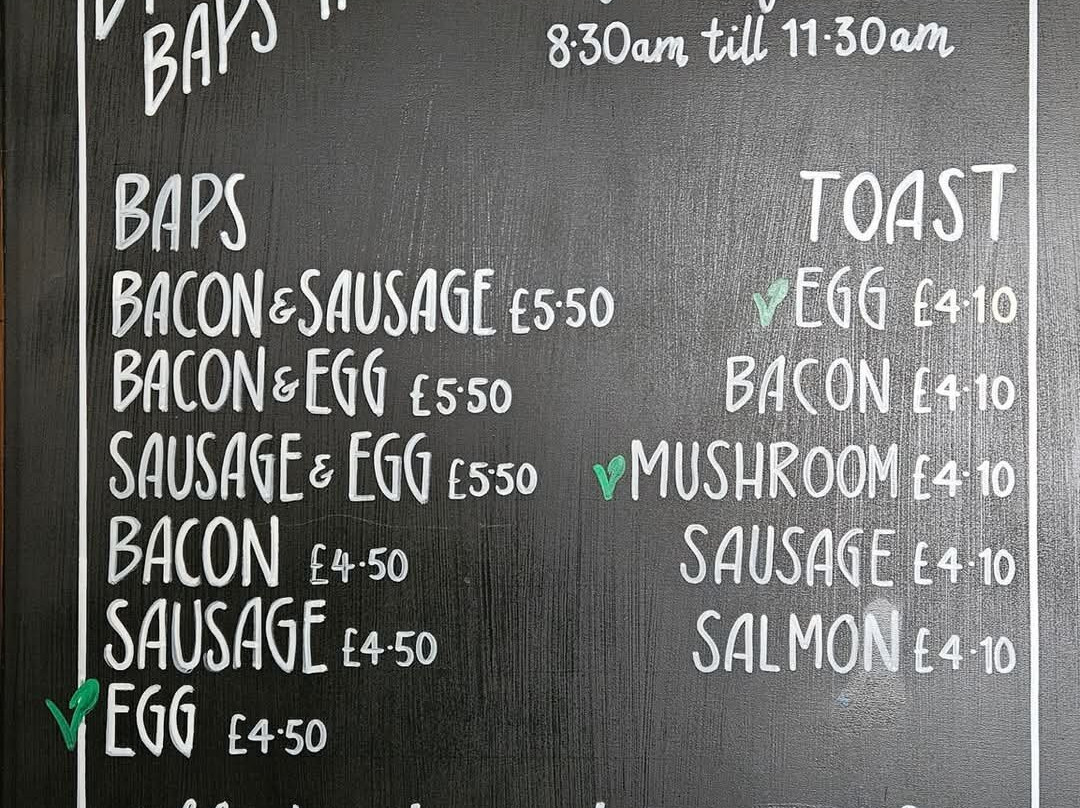 BAPS
8·30am till 11·30am
BAPS
BACON & SAUSAGE £5·50
BACON & EGG £5·50
SAUSAGE & EGG £5·50
BACON £4·50
SAUSAGE £4·50
V EGG £4·50
TOAST
V EGG £4·10
BACON £4·10
V MUSHROOM £4·10
SAUSAGE £4·10
SALMON £4·10